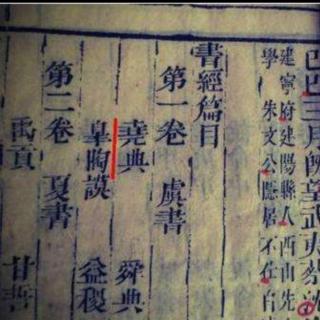 巳三月既望武夷蔡沈
建寧府建陽縣人西山先
學 朱文公隱居不仕自
書經篇目
第一卷 虞書
堯典 舜典
皐陶謨 益稷
第二卷 夏書
禹貢 甘誓